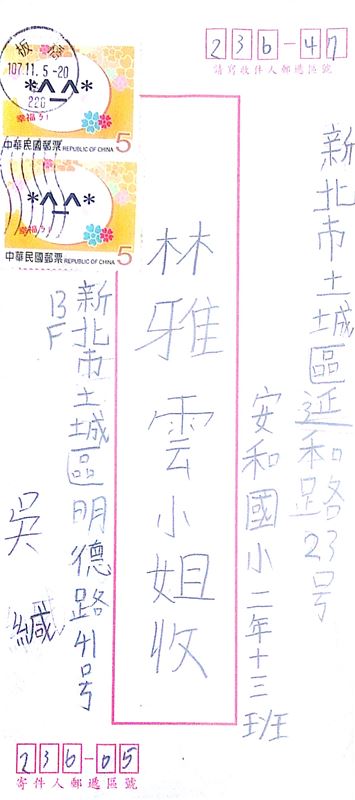 236-47
請寫收件人郵遞區號
新北市土城區延和路23号
安和國小二年十三班
林雅雲小姐收
107.11.5-20
220
*^_^*
幸福
5
中華民國郵票 REPUBLIC OF CHINA
*^_^*
幸福
5
中華民國郵票 REPUBLIC OF CHINA
新北市土城區明德路41号
13F
吳 緘
236-65
寄件人郵遞區號